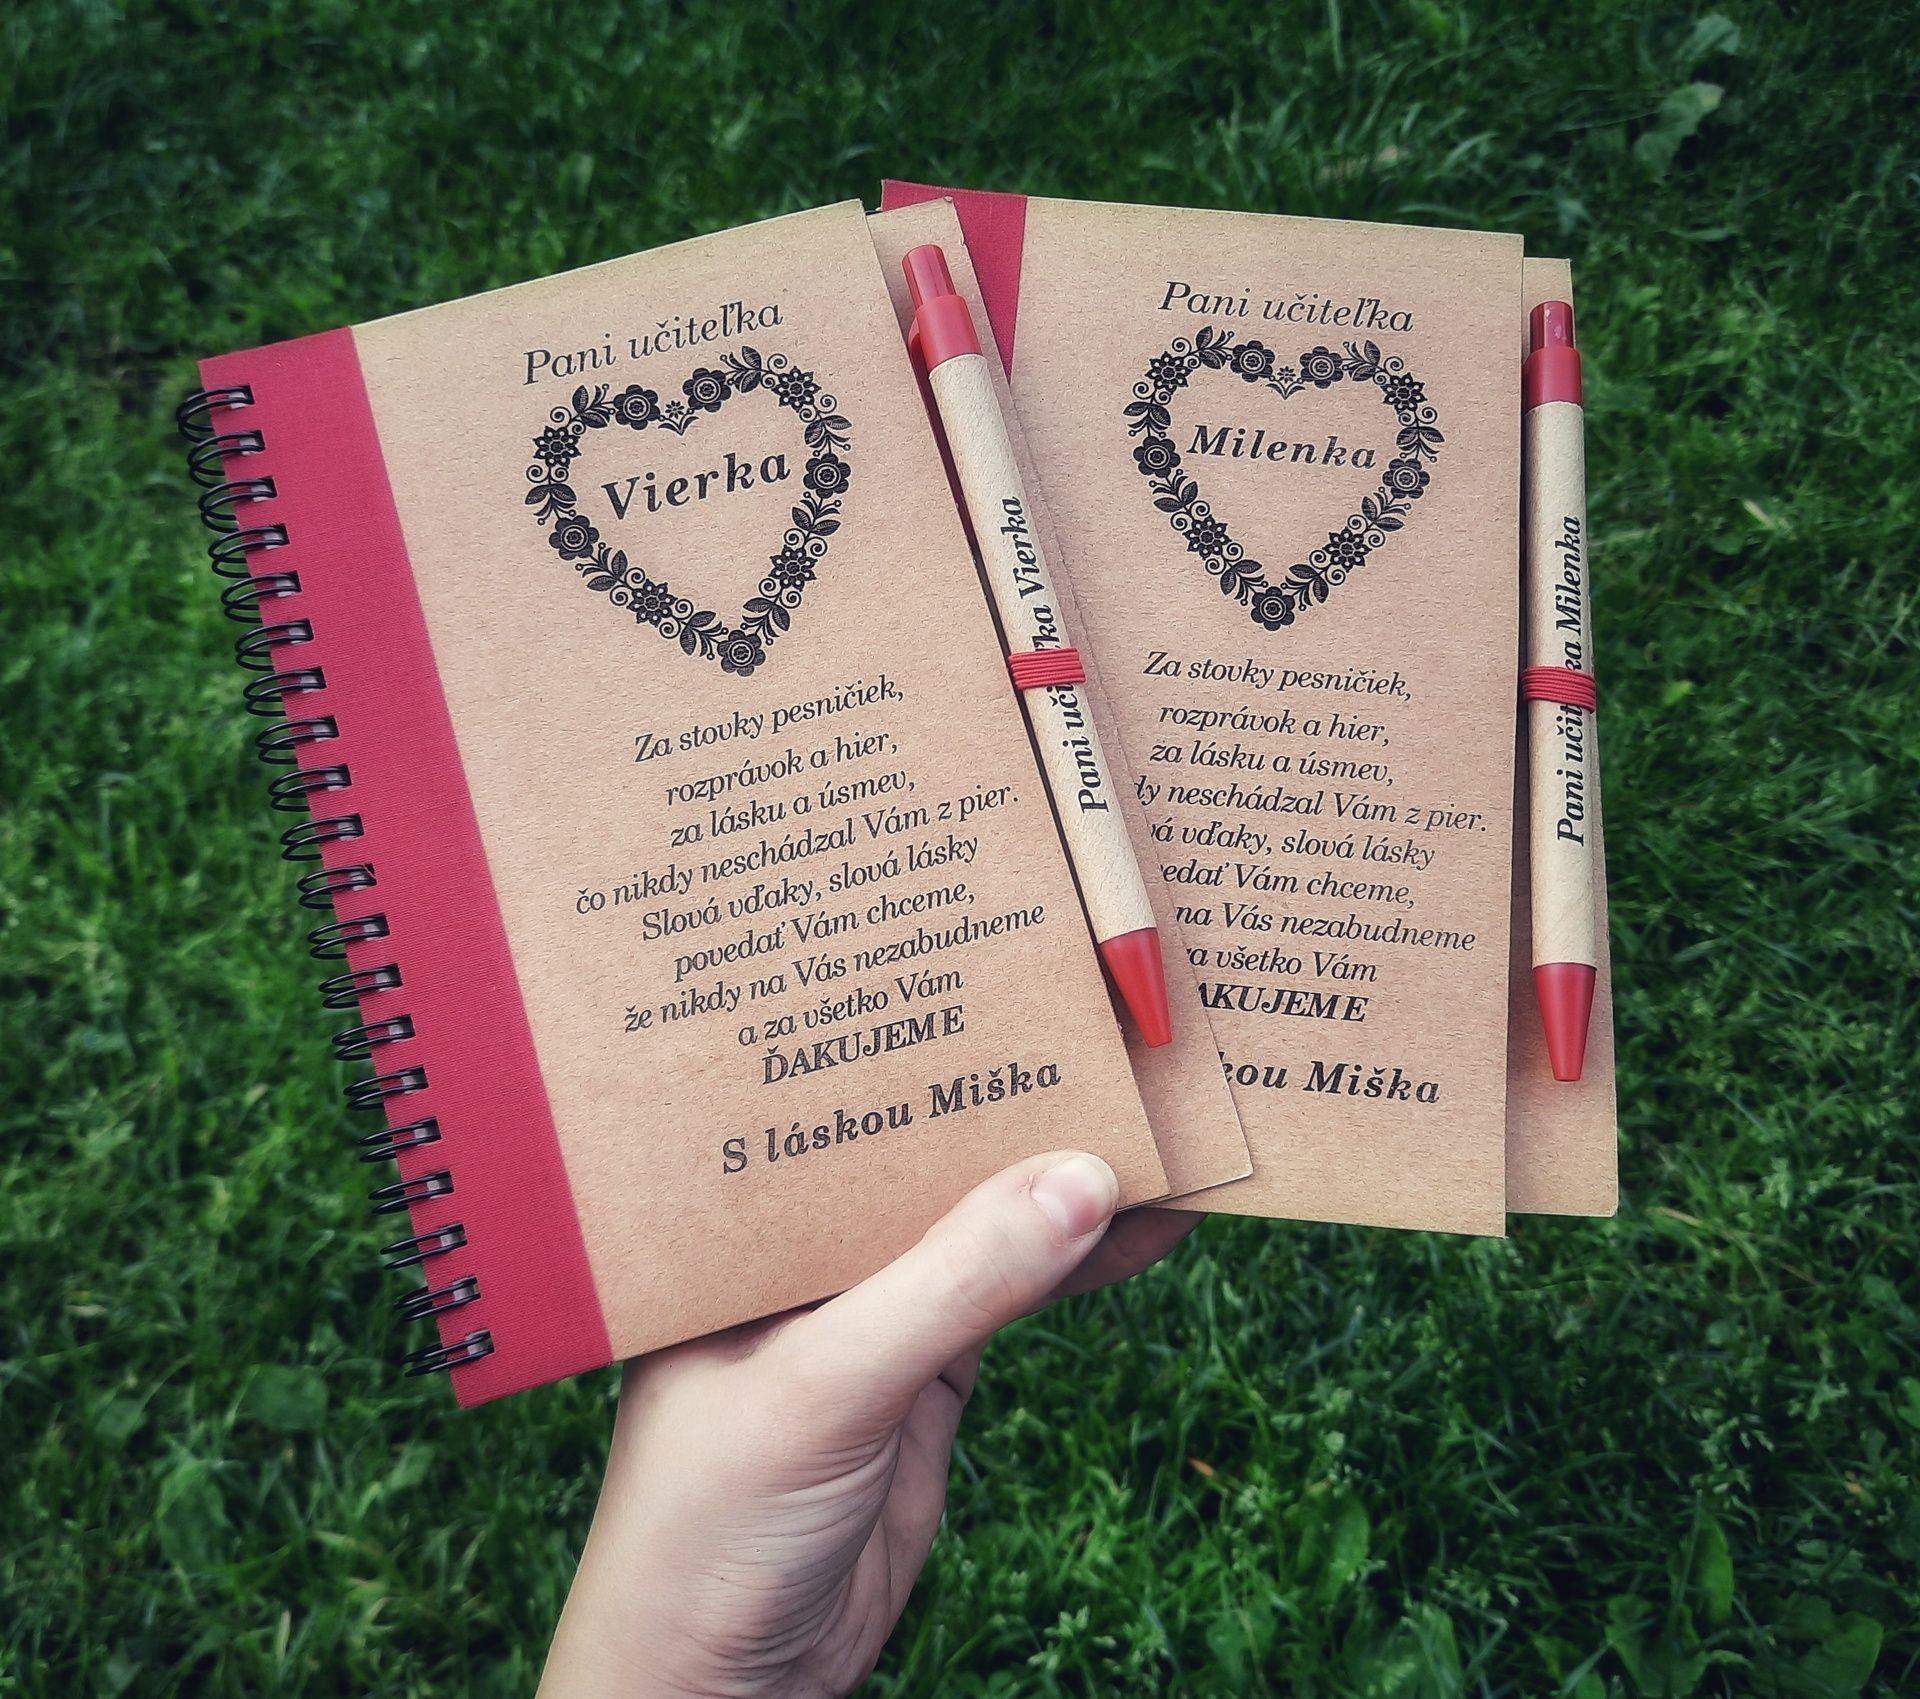 Pani učiteľka
Vierka
Za stovky pesničiek,
rozprávok a hier,
za lásku a úsmev,
čo nikdy neschádzal Vám z pier.
Slová vďaky, slová lásky
povedať Vám chceme,
že nikdy na Vás nezabudneme
a za všetko Vám
ĎAKUJEME
S láskou Miška
Pani učiteľka Vierka
Pani učiteľka
Milenka
Za stovky pesničiek,
rozprávok a hier,
za lásku a úsmev,
neschádzal Vám z pier.
vďaky, slová lásky
Vám chceme,
na Vás nezabudneme
všetko Vám
Miška
Pani Milenka